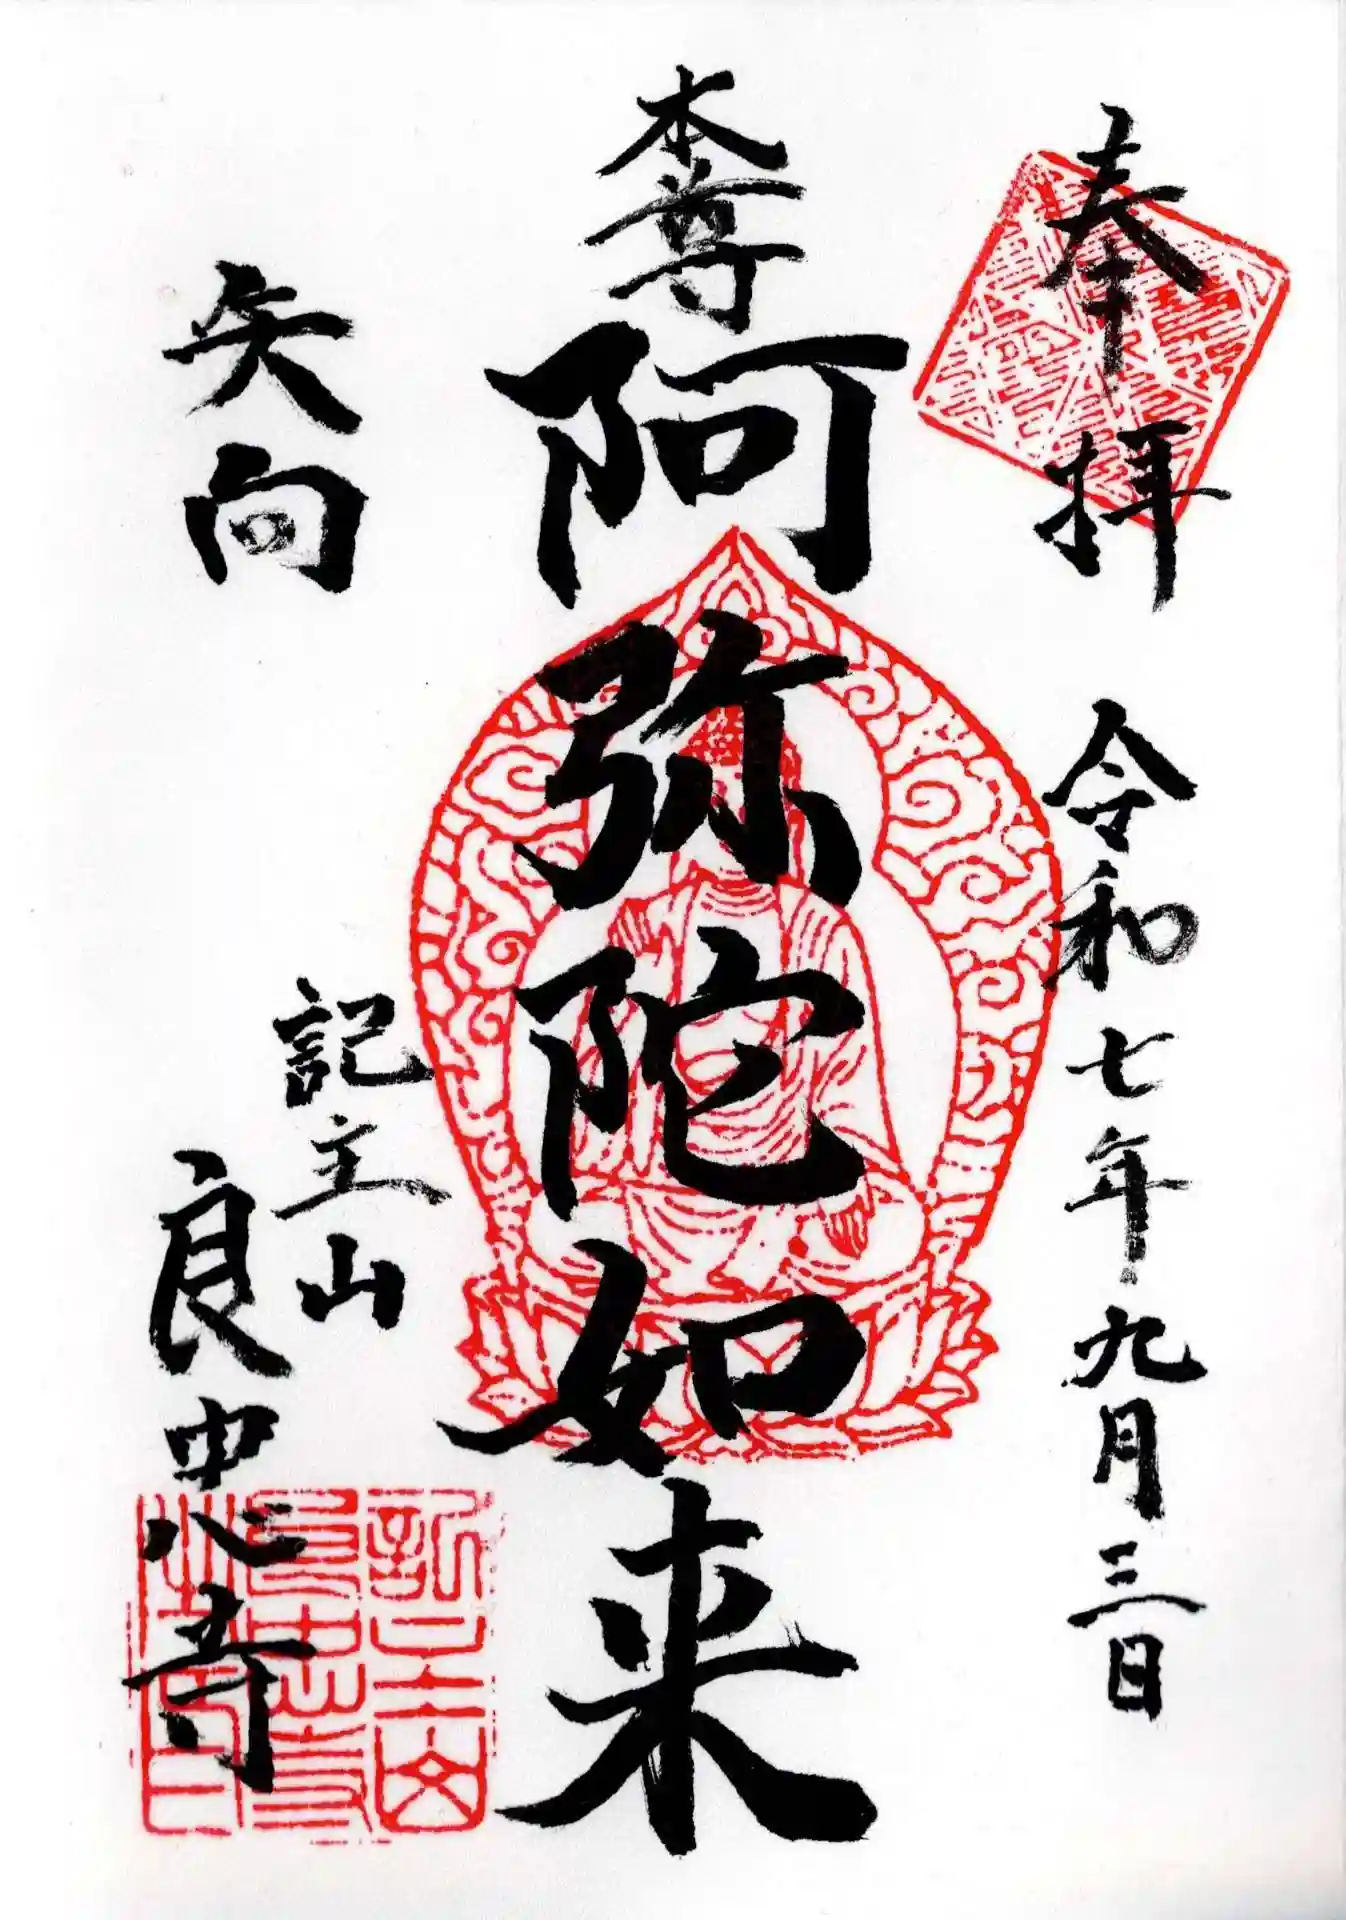 奉拝 令和七年九月三日
本尊
阿弥陀如来
矢向
記主山
良忠寺